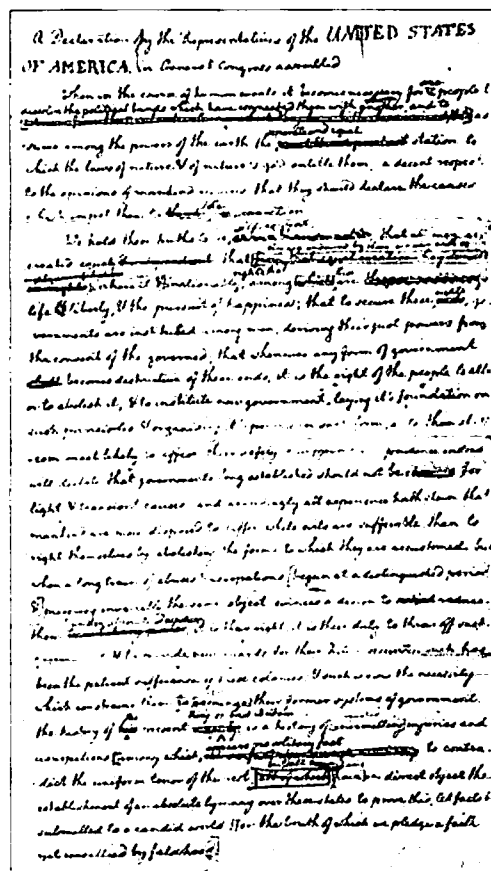 A Declaration by the Representatives of the UNITED STATES
OF AMERICA, in General Congress assembled
When in the course of human events it becomes necessary for one people to
dissolve the political bands which have connected them with another, and to
sume among the powers of the earth the separate and equal station to
which the laws of nature & of nature's god entitle them, a decent respect
to the opinions of mankind requires that they should declare the causes
which impel them to the separation
We hold these truths to be self-evident that all men are
created equal that
life & liberty, & the pursuit of happiness; that to secure these rights, go
vernments are instituted among men, deriving their just powers from
the consent of the governed; that whenever any form of government
becomes destructive of these ends, it is the right of the people to alter
or to abolish it, & to institute new government, laying it's foundation on
such principles & organising it's powers in such form, as to them shall
seem most likely to effect their safety & happiness. prudence indeed
will dictate that governments long established should not be changed for
light & transient causes: and accordingly all experience hath shewn that
mankind are more disposed to suffer while evils are sufferable, than to
right themselves by abolishing the forms to which they are accustomed. but
when a long train of abuses & usurpations [begun at a distinguished period
& pursuing invariably the same object, evinces a design to reduce
them under absolute despotism it is their right, it is their duty, to throw off such
government & to provide new guards for their future security. such has
been the patient sufferance of these colonies; & such is now the necessity
which constrains them to [expunge] their former systems of government.
the history of the present king of Great Britain is a history of [unremitting] injuries and
usurpations [among which, appears no solitary fact to contra-
dict the uniform tenor of the rest but all have in direct object the
establishment of an absolute tyranny over these states. to prove this, let facts be
submitted to a candid world [for the truth of which we pledge a faith
yet unsullied by falsehood]